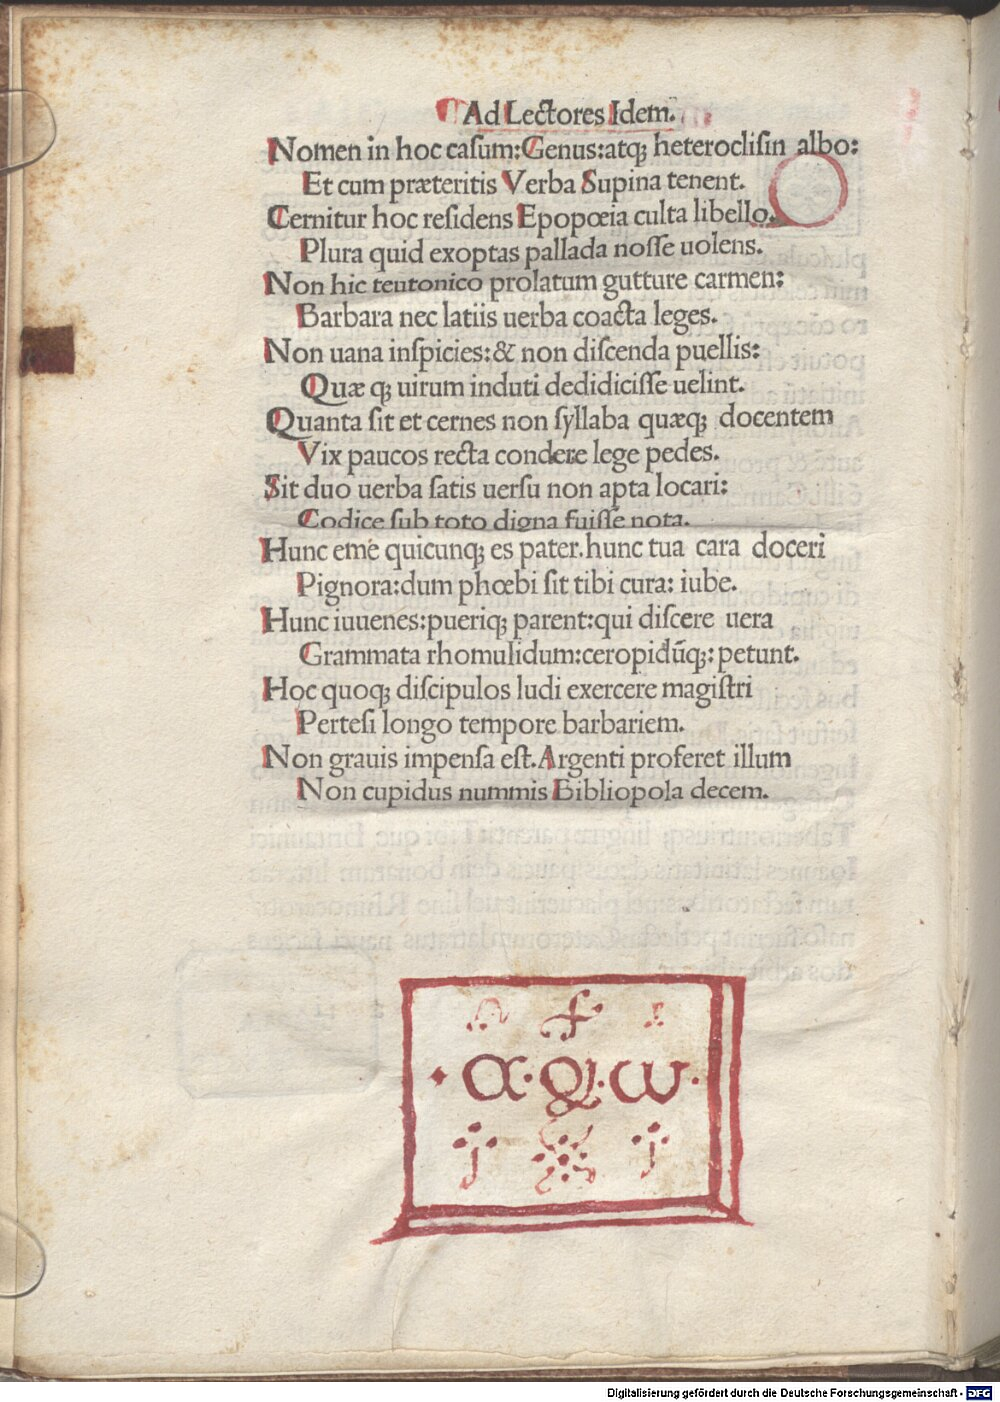 Ad Lectores Idem.
Nomen in hoc caſum:Genus:atqꝫ heterocliſin albo:
Et cum præteritis Verba Supina tenent.
Cernitur hoc reſidens Epopœia culta libello.
Plura quid exoptas pallada noſſe uolens.
Non hic teutonico prolatum gutture carmen:
Barbara nec latiis uerba coacta leges.
Non uana inſpicies:& non diſcenda puellis:
Quæ qꝫ uirum induti dedidiciſſe uelint.
Quanta ſit et cernes non ſyllaba quæqꝫ docentem
Vix paucos recta condere lege pedes.
Sit duo uerba ſatis uerſu non apta locari:
Codice ſub toto digna fuiſſe nota.
Hunc eme quicunqꝫ es pater.hunc tua cara doceri
Pignora:dum phœbi ſit tibi cura: iube.
Hunc iuuenes:pueriqꝫ parent:qui diſcere uera
Grammata rhomulidum:ceropidũqꝫ: petunt.
Hoc quoqꝫ diſcipulos ludi exercere magiſtri
Perteſi longo tempore barbariem.
Non grauis impenſa eſt.Argenti proferet illum
Non cupidus nummis Bibliopola decem.
Digitalisierung gefördert durch die Deutsche Forschungsgemeinschaft - DFG